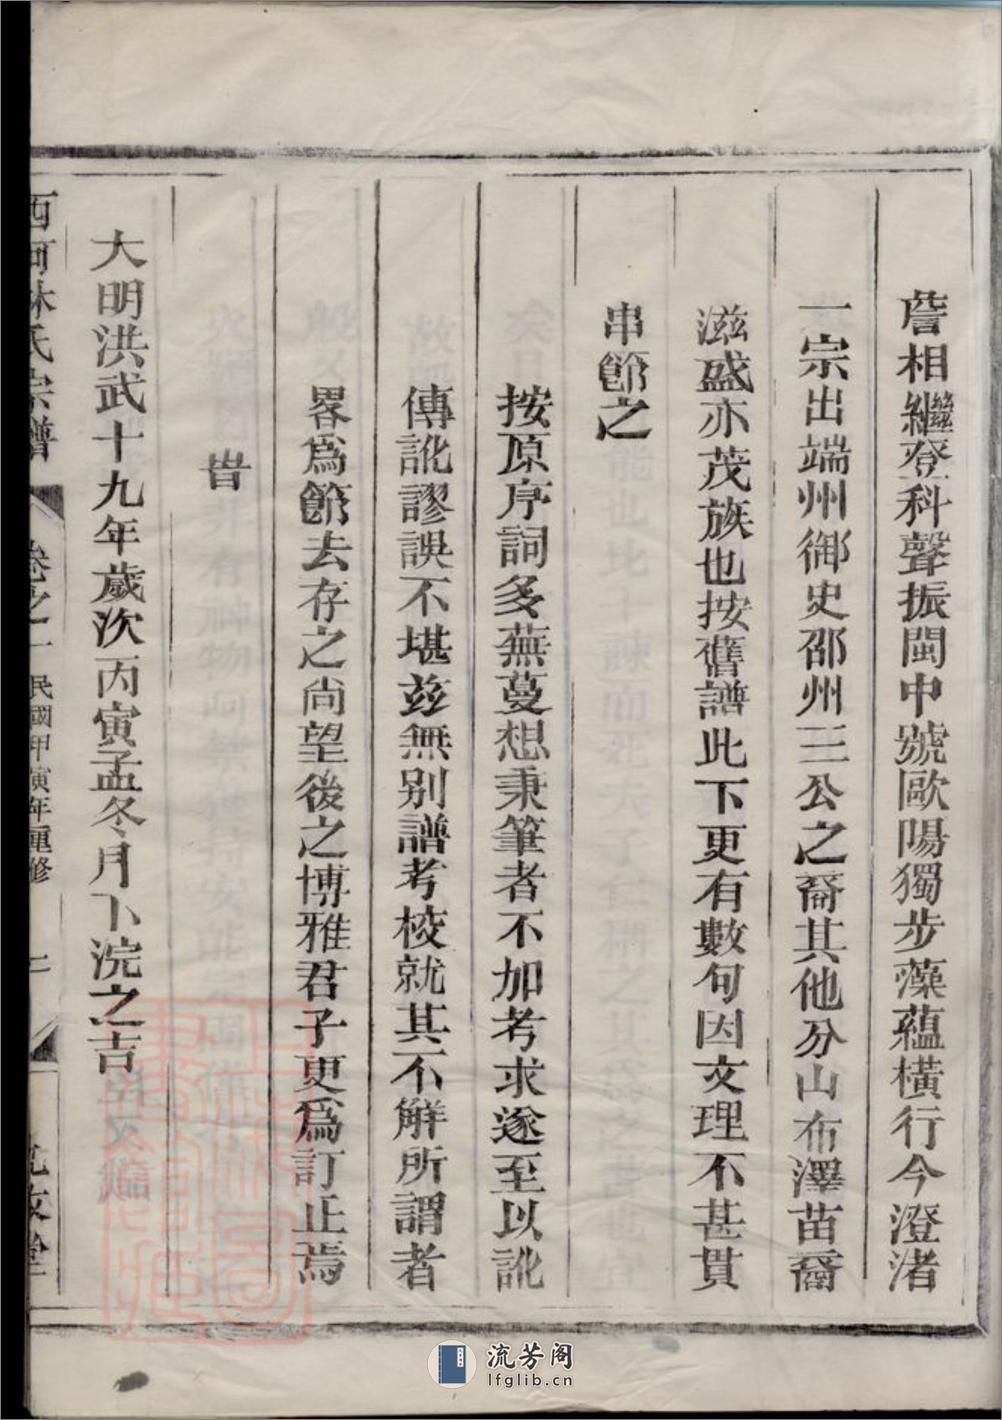 詹相繼登科聲振閩中號歐陽獨步藻蘊橫行今澄渚
一宗出端州御史邵州三公之裔其他分山布澤苗裔
滋盛亦茂族也按舊譜此下更有數句因文理不甚貫
串節之
按原序詞多蕪蔓想秉筆者不加考求遂至以訛
傳訛謬誤不堪茲無别譜考校就其不解所謂者
畧爲節去存之尚望後之博雅君子更爲訂正焉
旹
大明洪武十九年歲次丙寅孟冬月下浣之吉
西河林氏宗譜 卷之一 民國甲寅年重修
流芳阁
lfglib.cn